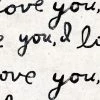 love you,
you, I lo
love you,